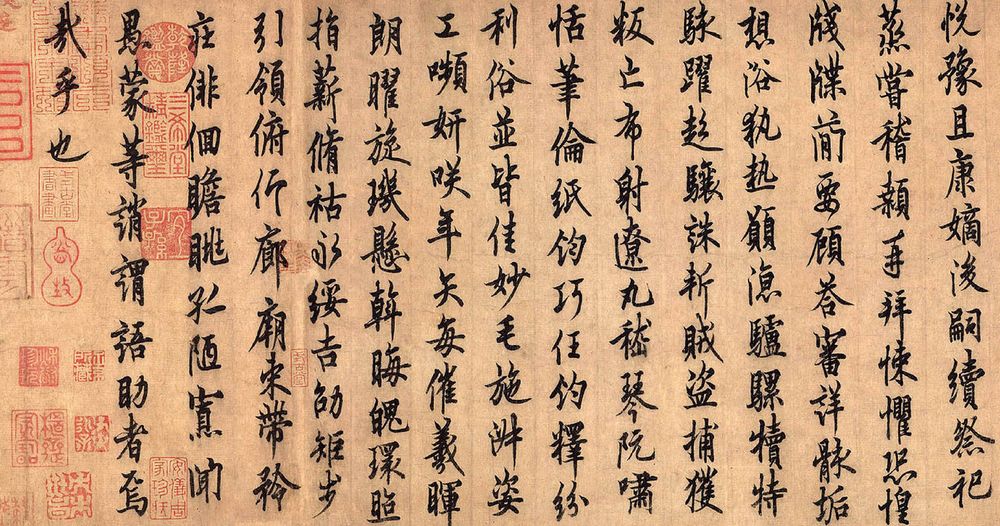 悦豫且康嫡後嗣續祭祀
蒸嘗稽顙再拜悚懼恐惶
牋牒簡要顧答審詳骸垢
想浴執熱願涼驢騾犢特
駭躍超驤誅斬賊盜捕獲
叛亡布射遼丸嵇琴阮嘯
恬筆倫紙鈞巧任釣釋紛
利俗並皆佳妙毛施淑姿
工嚬妍咲年矢每催羲暉
朗曜旋璣懸斡晦魄環照
指薪脩祜永綏吉劭矩步
引領俯仰廊廟束帶矜
莊俳佪瞻眺孤陋寡聞
愚蒙等誚謂語助者焉
哉乎也
乾隆鑑賞
三希堂精鑑璽
宜子孫